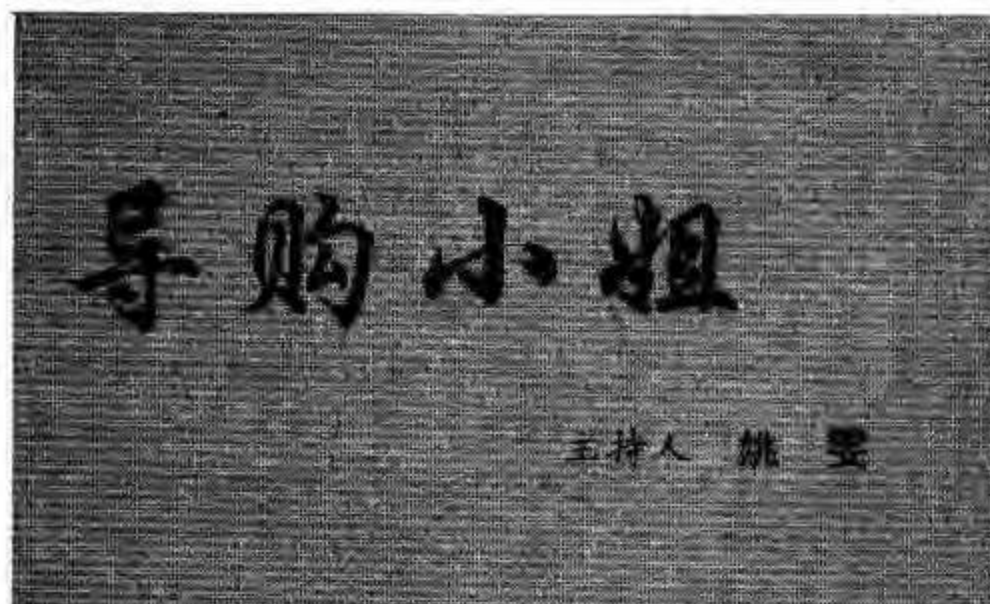 导购小姐
主持人 姚